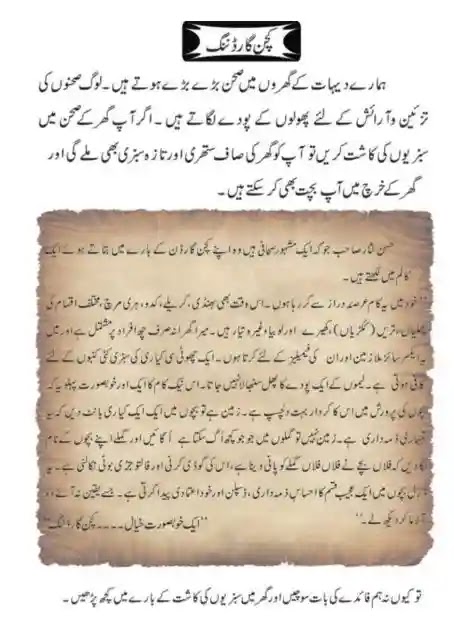 کچن گارڈننگ
ہمارے دیہات کے گھروں میں صحن بڑے بڑے ہوتے ہیں۔ لوگ صحنوں کی
تزئین و آرائش کے لئے پھولوں کے پودے لگاتے ہیں۔ اگر آپ گھر کے صحن میں
سبزیوں کی کاشت کریں تو آپ کو گھر کی صاف ستھری اور تازہ سبزی بھی ملے گی اور
گھر کے خرچ میں آپ بچت بھی کر سکتے ہیں۔
حسن نثار صاحب جو کہ ایک مشہور صحافی ہیں وہ اپنے کچن گارڈن کے بارے میں بتاتے ہوئے ایک
کالم میں لکھتے ہیں۔
"خود میں یہ کام عرصہ دراز سے کر رہا ہوں۔ اس وقت بھی بھنڈی، کریلے، کدو، ہری مرچ، مختلف اقسام کی
پھلیاں، تریں (ککڑیاں)، کھیرے اور لوبیا وغیرہ تیار ہیں۔ میرا گھرانہ صرف چھ افراد پر مشتمل ہے اور میں
یہ ایکسرسائز ملازمین اور ان کی فیملیز کے لئے کرتا ہوں۔ ایک چھوٹی سی کیاری کی سبزی کئی کنبوں کے لئے
کافی ہوتی ہے۔ لیموں کے ایک پودے کا پھل سنبھالا نہیں جاتا۔ اس نیک کام کا ایک اور خوبصورت پہلو یہ کہ
بچوں کی پرورش میں اس کا کردار بہت دلچسپ ہے۔ زمین ہے تو بچوں میں ایک ایک کیاری بانٹ دیں کہ یہ
تمہاری ذمہ داری ہے۔ زمین نہیں تو گملوں میں جو جو کچھ اُگ سکتا ہے اُگائیں اور گملے اپنے بچوں کے نام
لگا دیں کہ فلاں بچے نے فلاں فلاں گملے کو پانی دینا ہے، اس کی گوڈی کرنی اور فالتو جڑی بوٹی نکالنی ہے۔ یہ
بچوں میں ایک عجیب قسم کا احساس ذمہ داری، ڈسپلن اور خود اعتمادی پیدا کرتی ہے۔ جسے یقین نہ آئے وہ
آزما کر دیکھ لے۔" "ایک خوبصورت خیال۔۔۔۔کچن گارڈننگ"
تو کیوں نہ ہم فائدے کی بات سوچیں اور گھر میں سبزیوں کی کاشت کے بارے میں کچھ پڑھیں۔